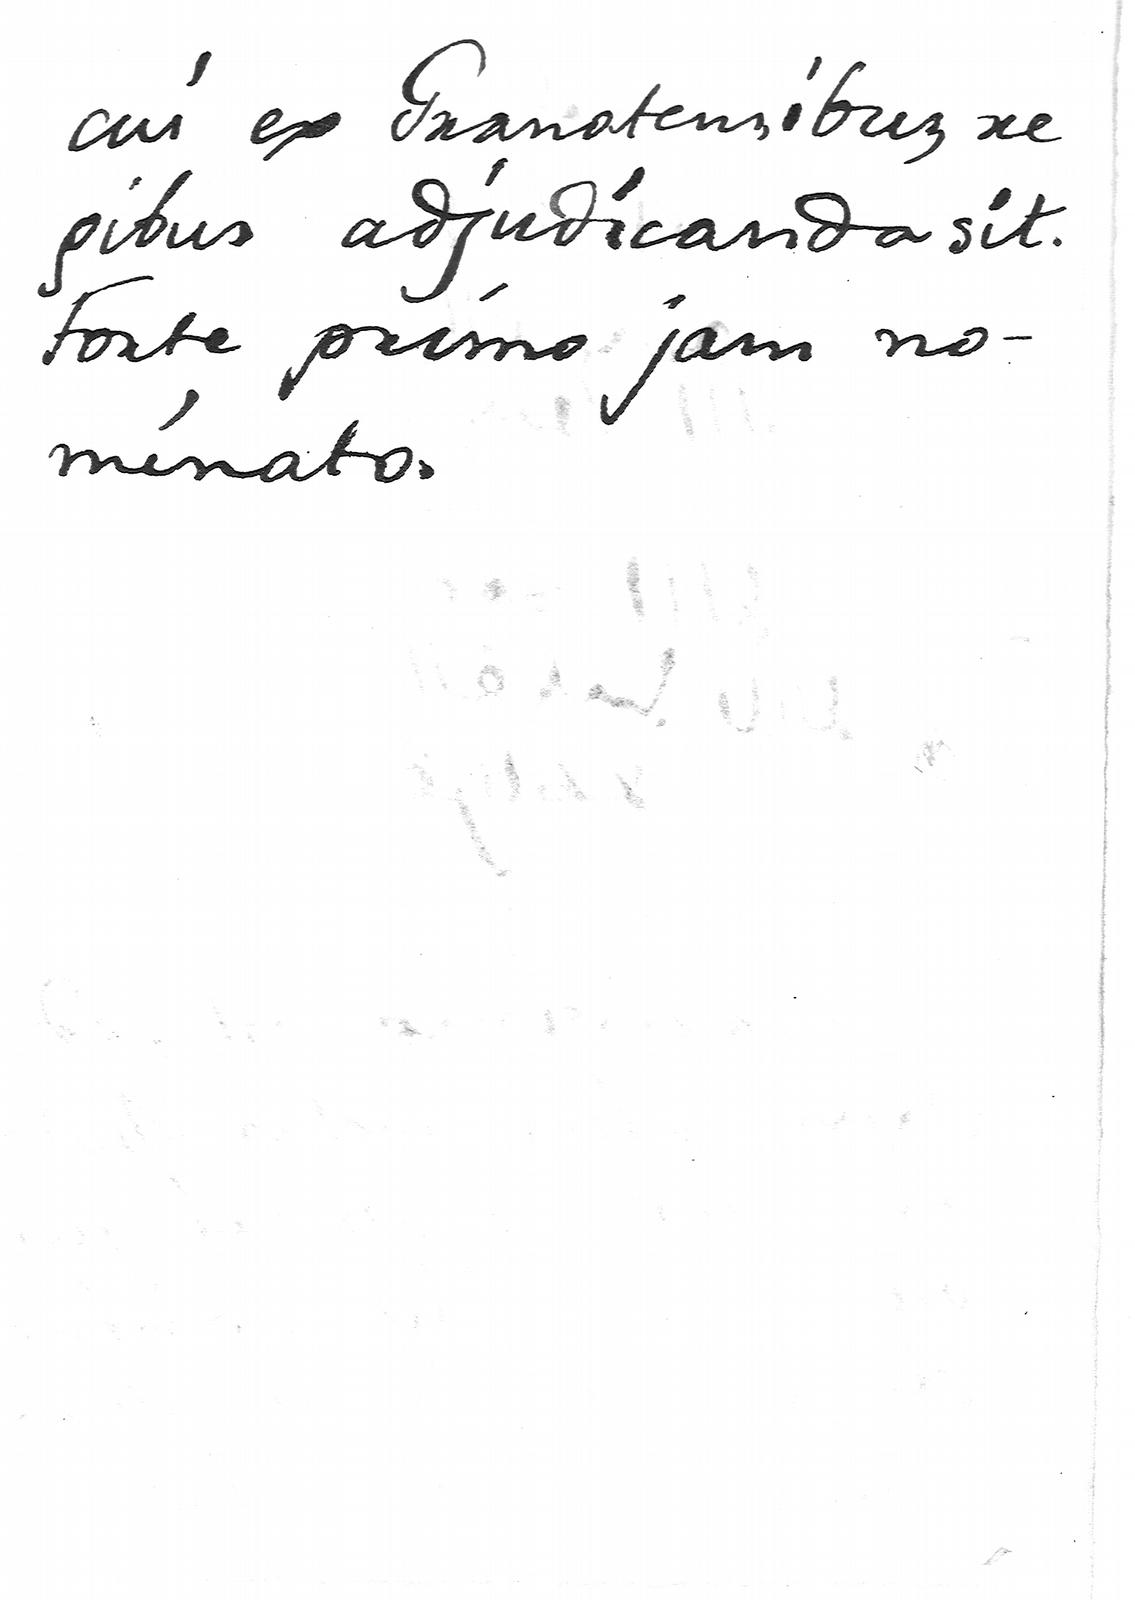 cui ex Granatensibus re
gibus adjudicanda sit.
Forte primo jam no-
minato.